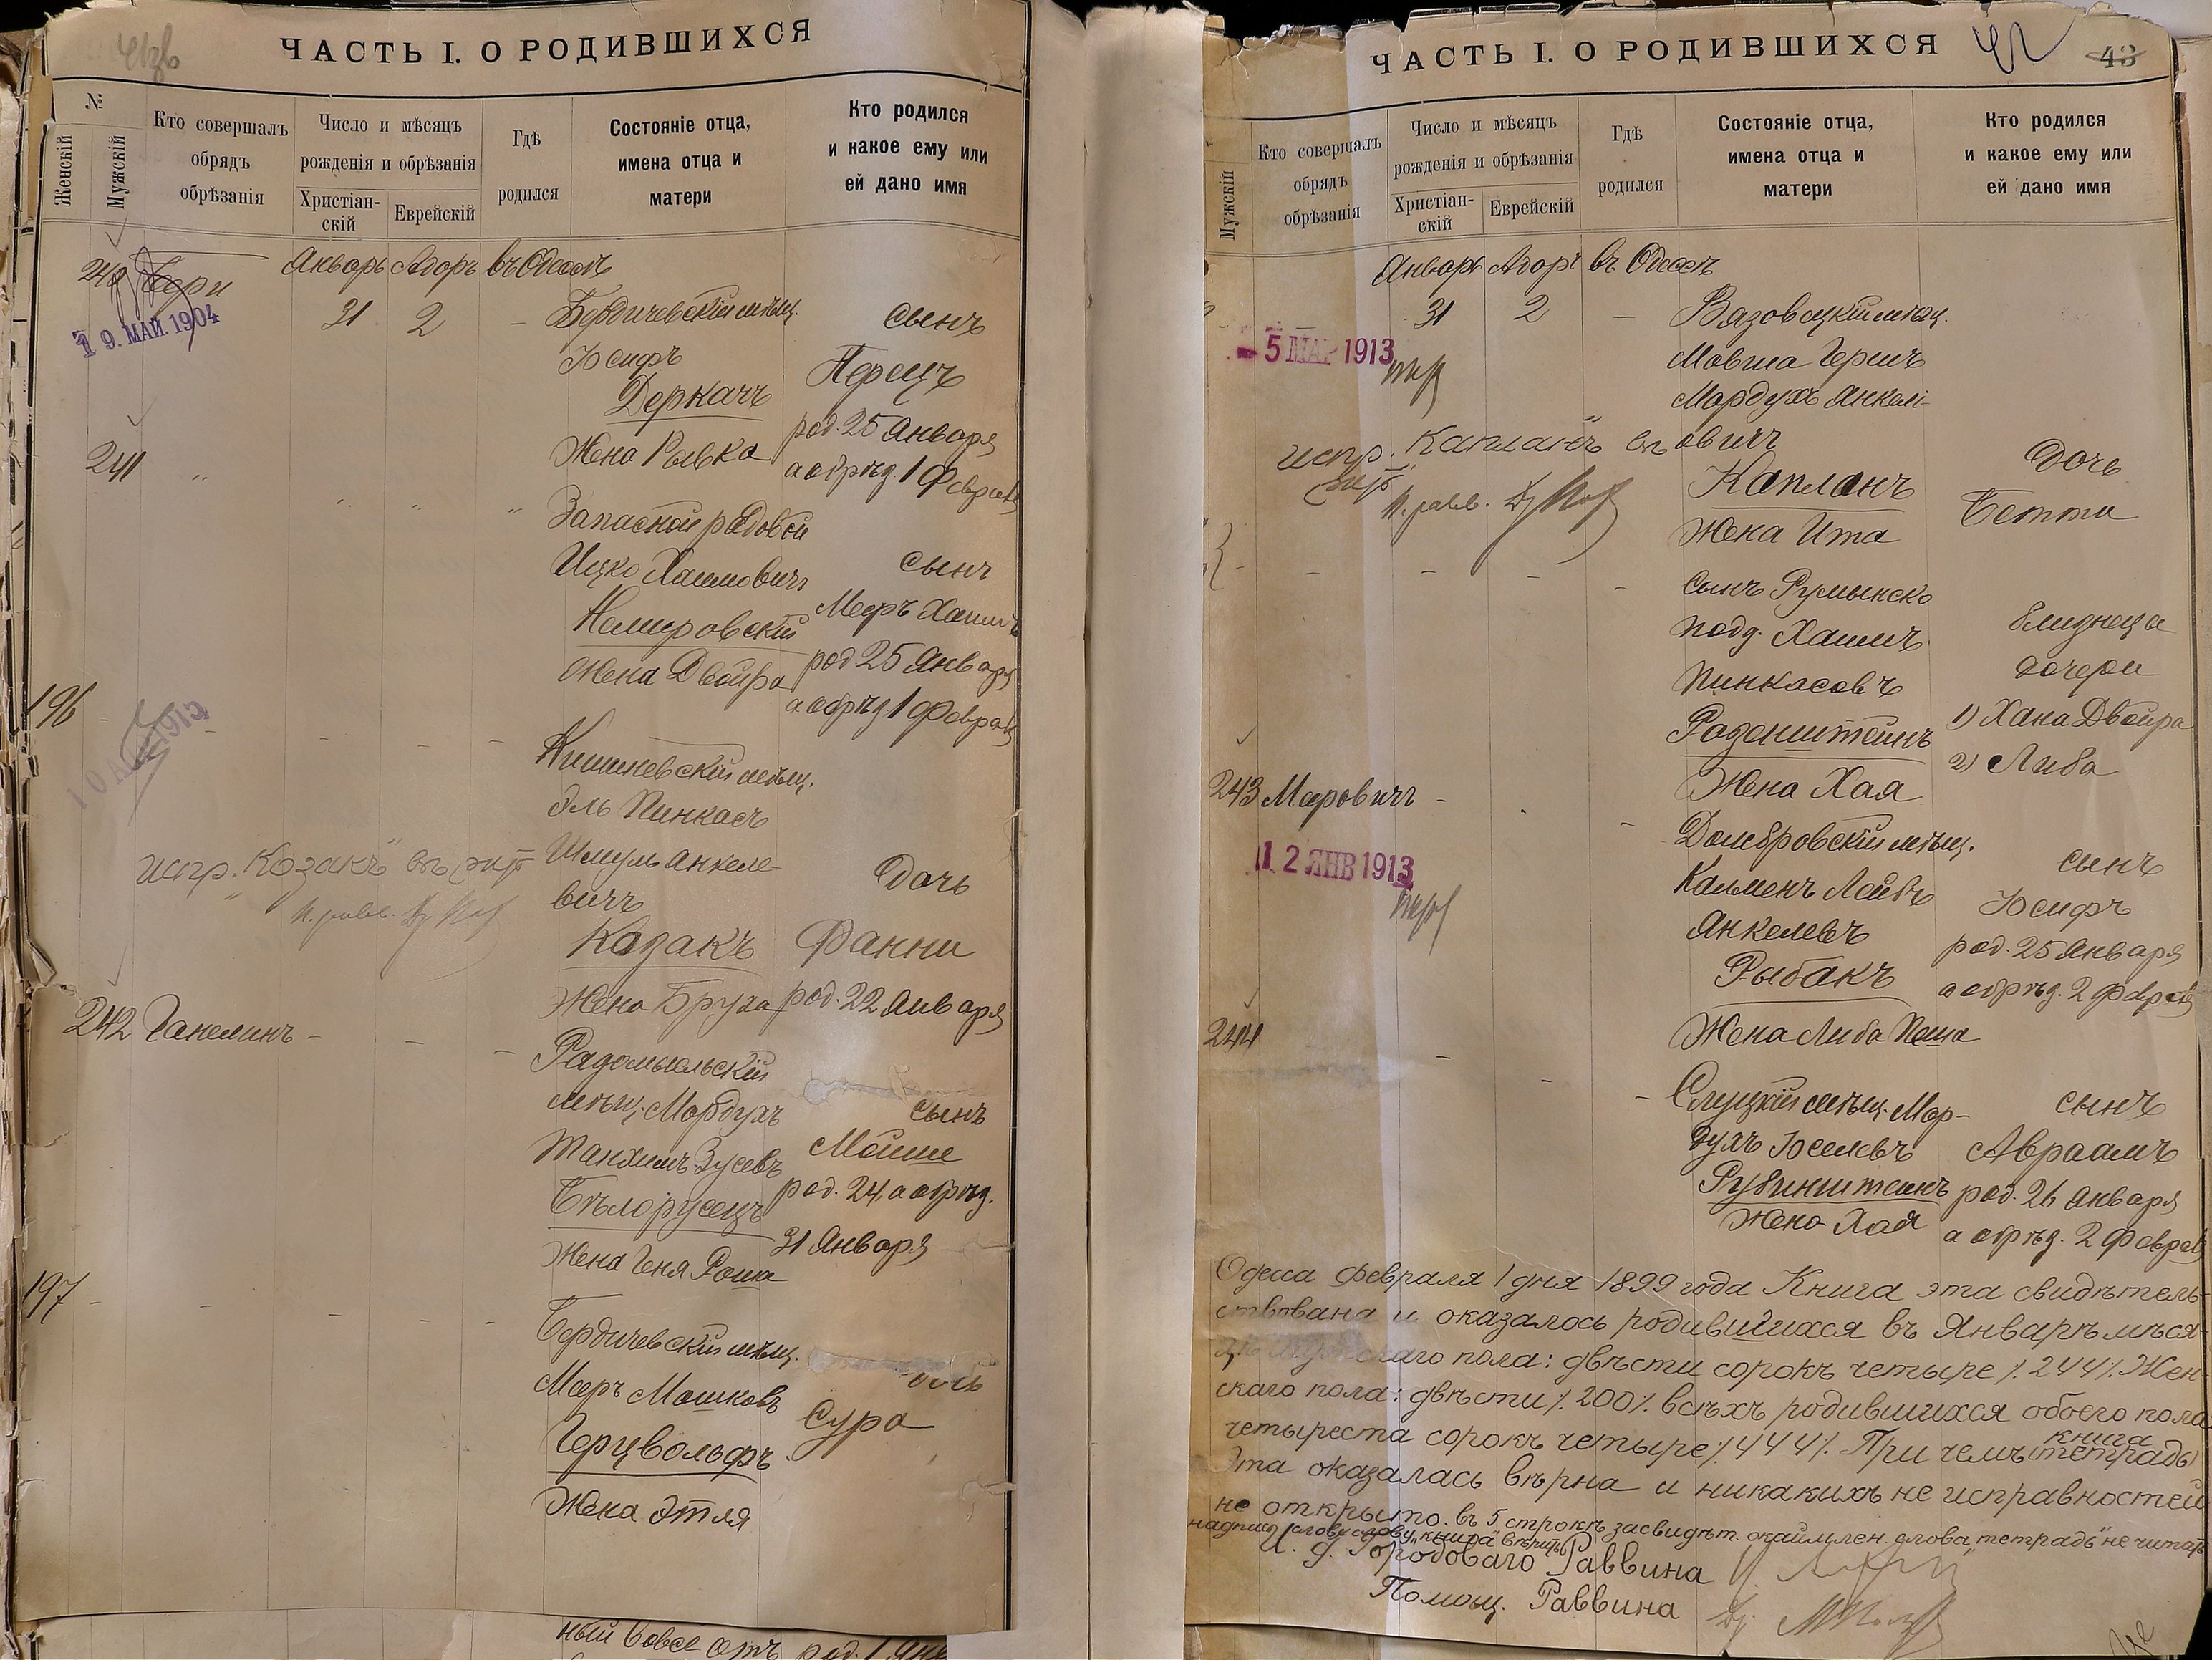 ЧАСТЬ I. О РОДИВШИХСЯ
№
Женскій
Мужскій
Кто совершалъ
обрядъ
обрѣзанія
Число и мѣсяцъ
рожденія и обрѣзанія
Христіан-
скій
Еврейскій
Гдѣ
родился
Состояніе отца,
имена отца и
матери
Кто родился
и какое ему или
ей дано имя
240
19. МАЙ. 1904
Январь Адоръ въ Одессѣ
31 2 –
Бердичевскій мѣщ.
Іосифъ
Деркачъ
Жена Ривка
сынъ
Перецъ
род. 25 Января
а обрѣз. 1 Февраля
241 " " " "
Запасной рядовой
Ицко Хаимовичъ
Немировскій
Жена Двойра
сынъ
Мееръ Хаимъ
род 25 Января
а обрѣз. 1 Февраля
196 – – – – –
Кишиневскій мѣщ.
Эль Пинкасъ
Шмуль Анкеле-
вичъ
Козакъ
Жена Бруха
дочь
Фанни
род. 22 Января
испр. "Козакъ" въ
242 Ганелинъ – – –
Радомысльскій
мѣщ. Мордухъ
Танхимъ Зусевъ
Бѣлорусецъ
Жена Геня Роша
сынъ
Мойше
род. 24, а обрѣз.
31 Января
197 – – – – –
Бердичевскій мѣщ.
Меръ Мошковъ
Герцвольфъ
Жена Этля
дочь
Сура
ный вовсе отъ род. 1 Янв
ЧАСТЬ I. О РОДИВШИХСЯ
43
Мужскій
Кто совершалъ
обрядъ
обрѣзанія
Число и мѣсяцъ
рожденія и обрѣзанія
Христіан-
скій
Еврейскій
Гдѣ
родился
Состояніе отца,
имена отца и
матери
Кто родился
и какое ему или
ей дано имя
Январь Адоръ въ Одессѣ
31 2 –
– 5 МАР 1913
Вязовецкій мѣщ.
Мовша Гершъ
Мордухъ Анкел-
овичъ
Капланъ
Жена Ита
дочь
Бетти
испр. "Капланъ" въ
– – – – –
сынъ Румынско
подд. Хаимъ
Пинкасовъ
Роденштейнъ
Жена Хая
близнецы
дочери
1) Хана Двойра
2) Либа
243 Меровичъ – . –
12 ЯНВ 1913
Домбровскій мѣщ.
Кальменъ Лейбъ
Анкелевъ
Рыбакъ
Жена Либа Песа
сынъ
Іосифъ
род. 25 Января
а обрѣз. 2 Февраля
244 – – –
Слуцкій мѣщ. Мор-
духъ Іоселевъ
Рубинштейнъ
Жена Хая
сынъ
Авраамъ
род. 26 Января
а обрѣз. 2 Февраля
Одесса Февраля 1 дня 1899 года Книга эта свидѣтель-
ствована и оказалось родившихся въ Январѣ мѣся-
цѣ мужескаго пола: двѣсти сорокъ четыре /.244/. Жен-
скаго пола: двѣсти /.200/. всѣхъ родившихся обоего пола
четыреста сорокъ четыре /.444/. При чемъ тетрадь
книга
эта оказалась вѣрна и никакихъ не исправностей
не открыто. въ 5 строкѣ засвидѣт. окаймлен. слова "тетрадь" не читать
И. д. Городоваго Раввина
Помощ. Раввина